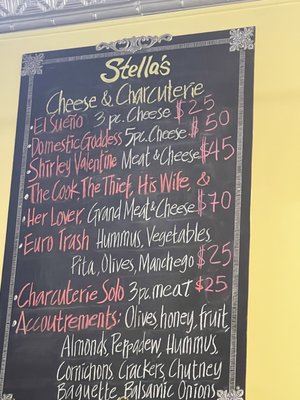 Stella's
Cheese & Charcuterie
• El Sueño 3 pc. Cheese $25
• Domestic Goddess 5pc. Cheese $50
• Shirley Valentine Meat & Cheese $45
• The Cook, The Thief, His Wife, &
• Her Lover, Grand Meat & Cheese $70
• Euro Trash Hummus, Vegetables,
Pita, Olives, Manchego $25
• Charcuterie Solo 3pc. meat $25
• Accoutrements: Olives, honey, fruit,
Almonds, Peppadew, Hummus,
Cornichons, Crackers, Chutney
Baguette, Balsamic Onions